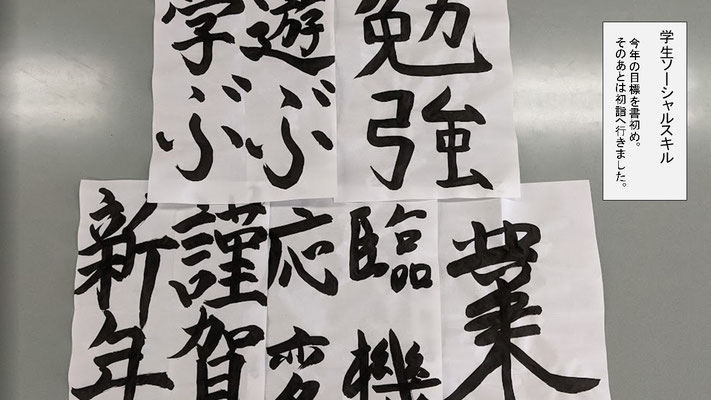 学生ソーシャルスキル
今年の目標を書初め。
そのあとは初詣へ行きました。
勉強
遊ぶ
学ぶ
業
臨機
応変
謹賀
新年